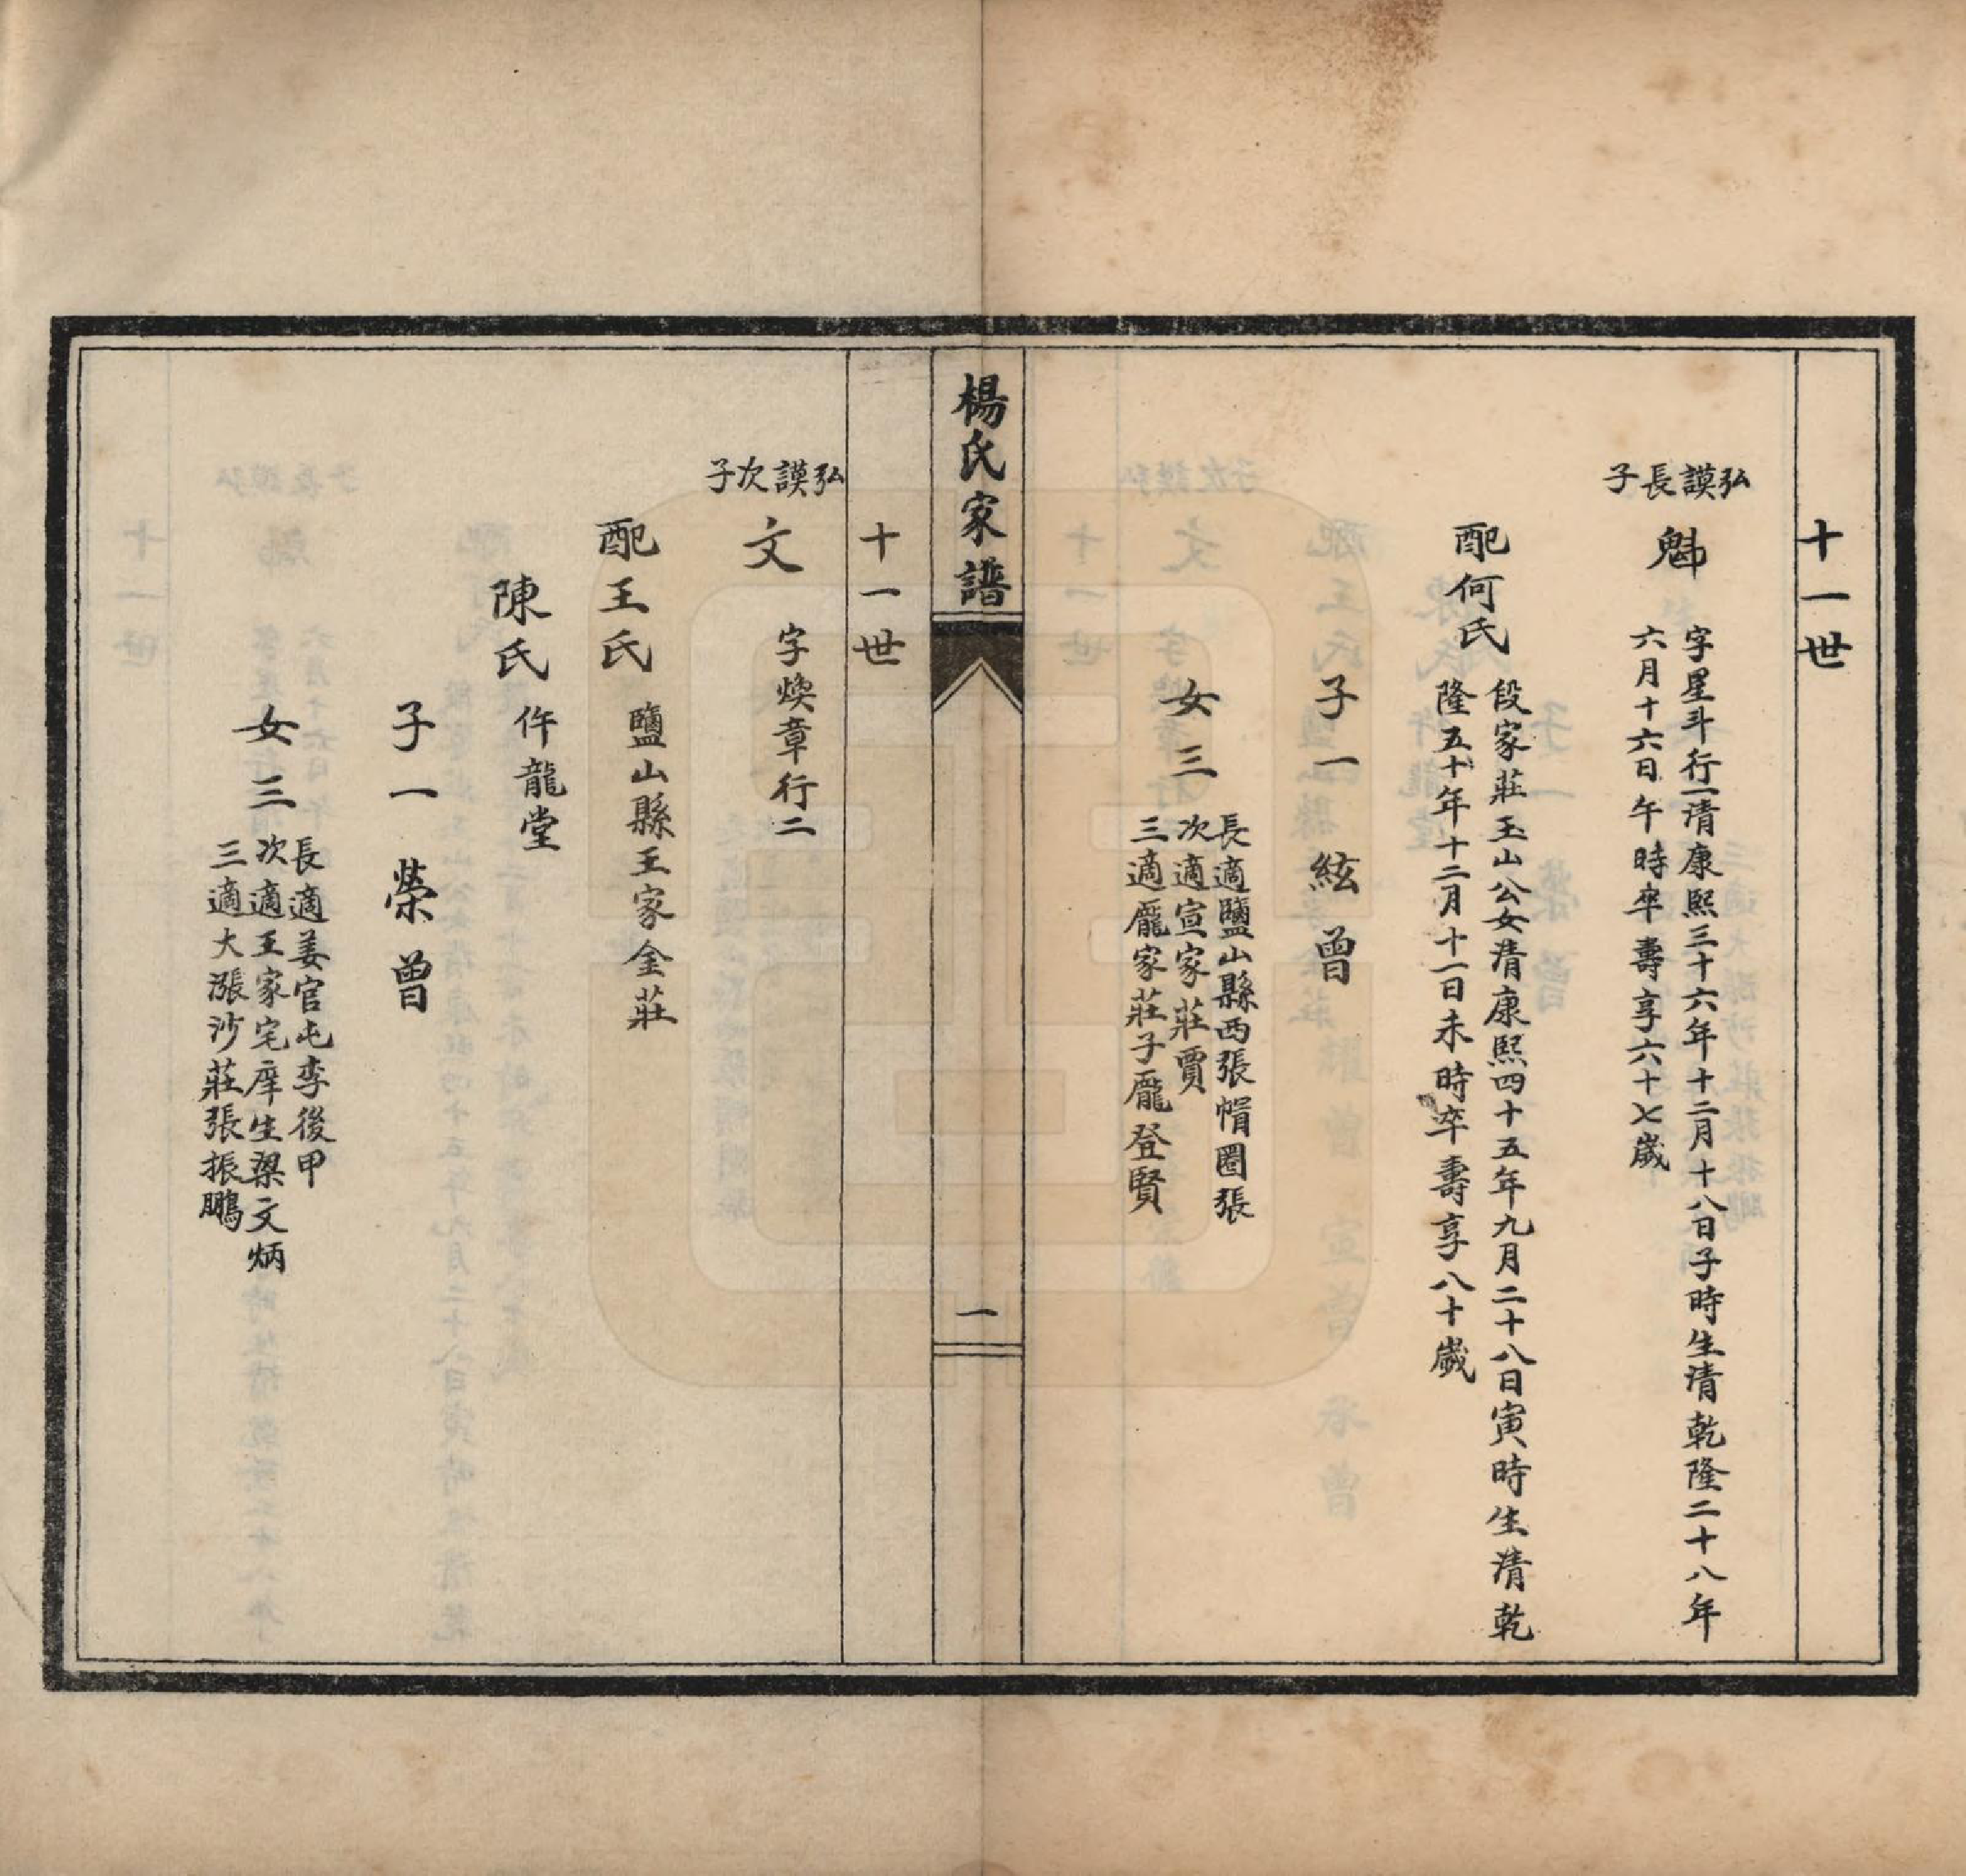 十一世
弘謨長子
魁
字星斗行一清康熙三十六年十二月十八日子時生清乾隆二十八年
六月十六日午時卒壽享六十七歲
配何氏
段家莊玉山公女清康熙四十五年九月二十八日寅時生清乾
隆五十年十二月十一日未時卒壽享八十歲
子一 絃曾
女三
長適鹽山縣西張帽圈張
次適宣家莊賈
三適龎家莊子龎登賢
楊氏家譜
一
十一世
弘謨次子
文
字煥章行二
配王氏
鹽山縣王家金莊
陳氏
仵龍堂
子一 榮曾
女三
長適姜官屯李後甲
次適王家宅庠生梁文炳
三適大漲沙莊張振鵬